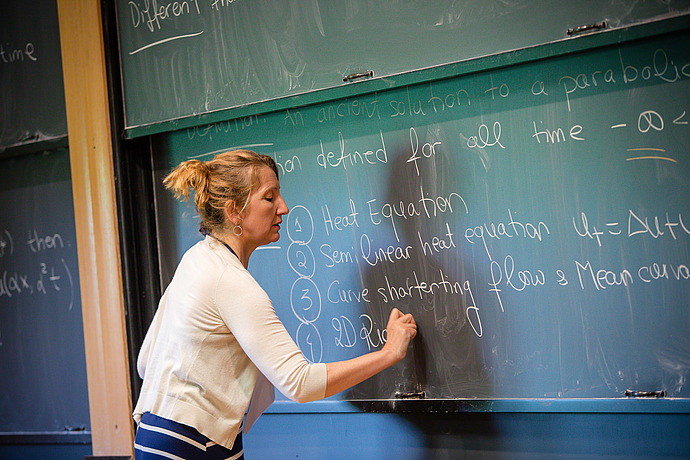 Different
time
Definition. An ancient solution to a parabolic
defined for all time - ∞ <
① Heat Equation
② Semilinear heat equation uₜ = Δu +
then.
③ Curve shartening flow & Mean curva
(αx, α²t)
④ 2D Ric